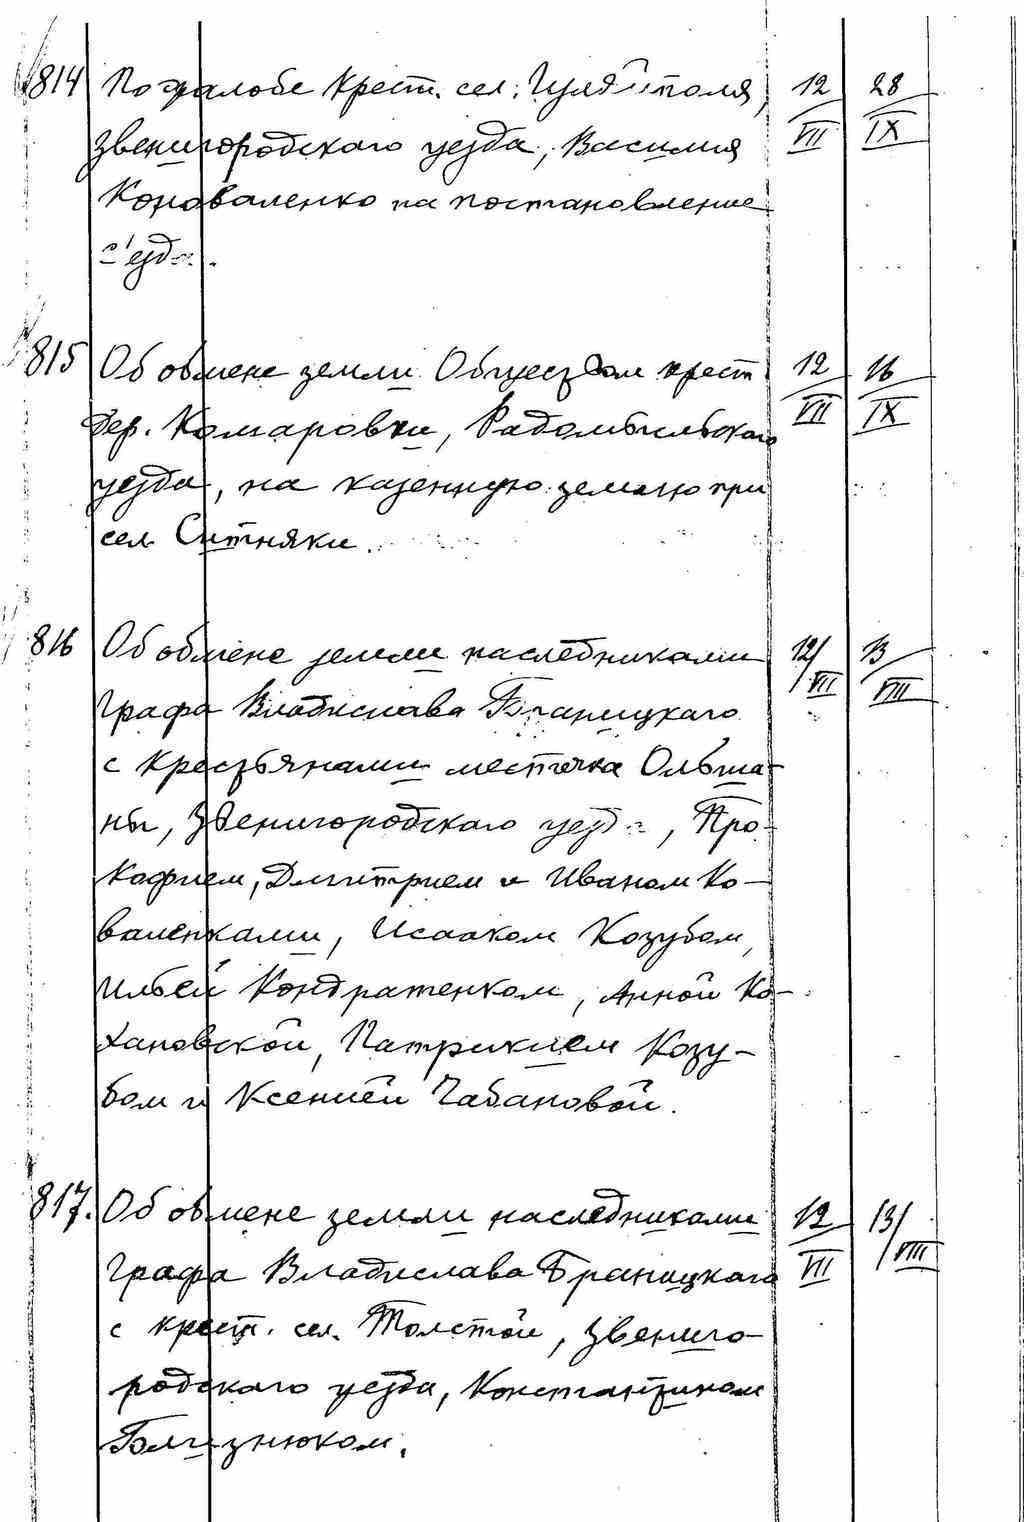 814 По жалобе крест. сел. Гуляйполя, 12/VII 28/IX
Звенигородского уезда, Василия
Коноваленко на постановление
с'езда.
815 Об обмене земли Обществом крест. 12/VII 16/IX
дер. Комаровки, Радомысльского
уезда, на казенную землю при
сел. Ситняки.
816 Об обмене земли наследниками 12/VII 13/VIII
Графа Владислава Браницкаго
с крестьянами местечка Ольша-
ны, Звенигородскаго уезда, Про-
кофием, Дмитрием и Иваном Ко-
валенками, Исааком Козубом,
Ильей Кондратенком, Анной Ко-
хановской, Патрикием Козу-
бом и Ксенией Чабановой.
817. Об обмене земли наследниками 12/VII 13/VIII
Графа Владислава Браницкаго
с крест. сел. Толстой, Звениго-
родскаго уезда, Константином
Близнюком.